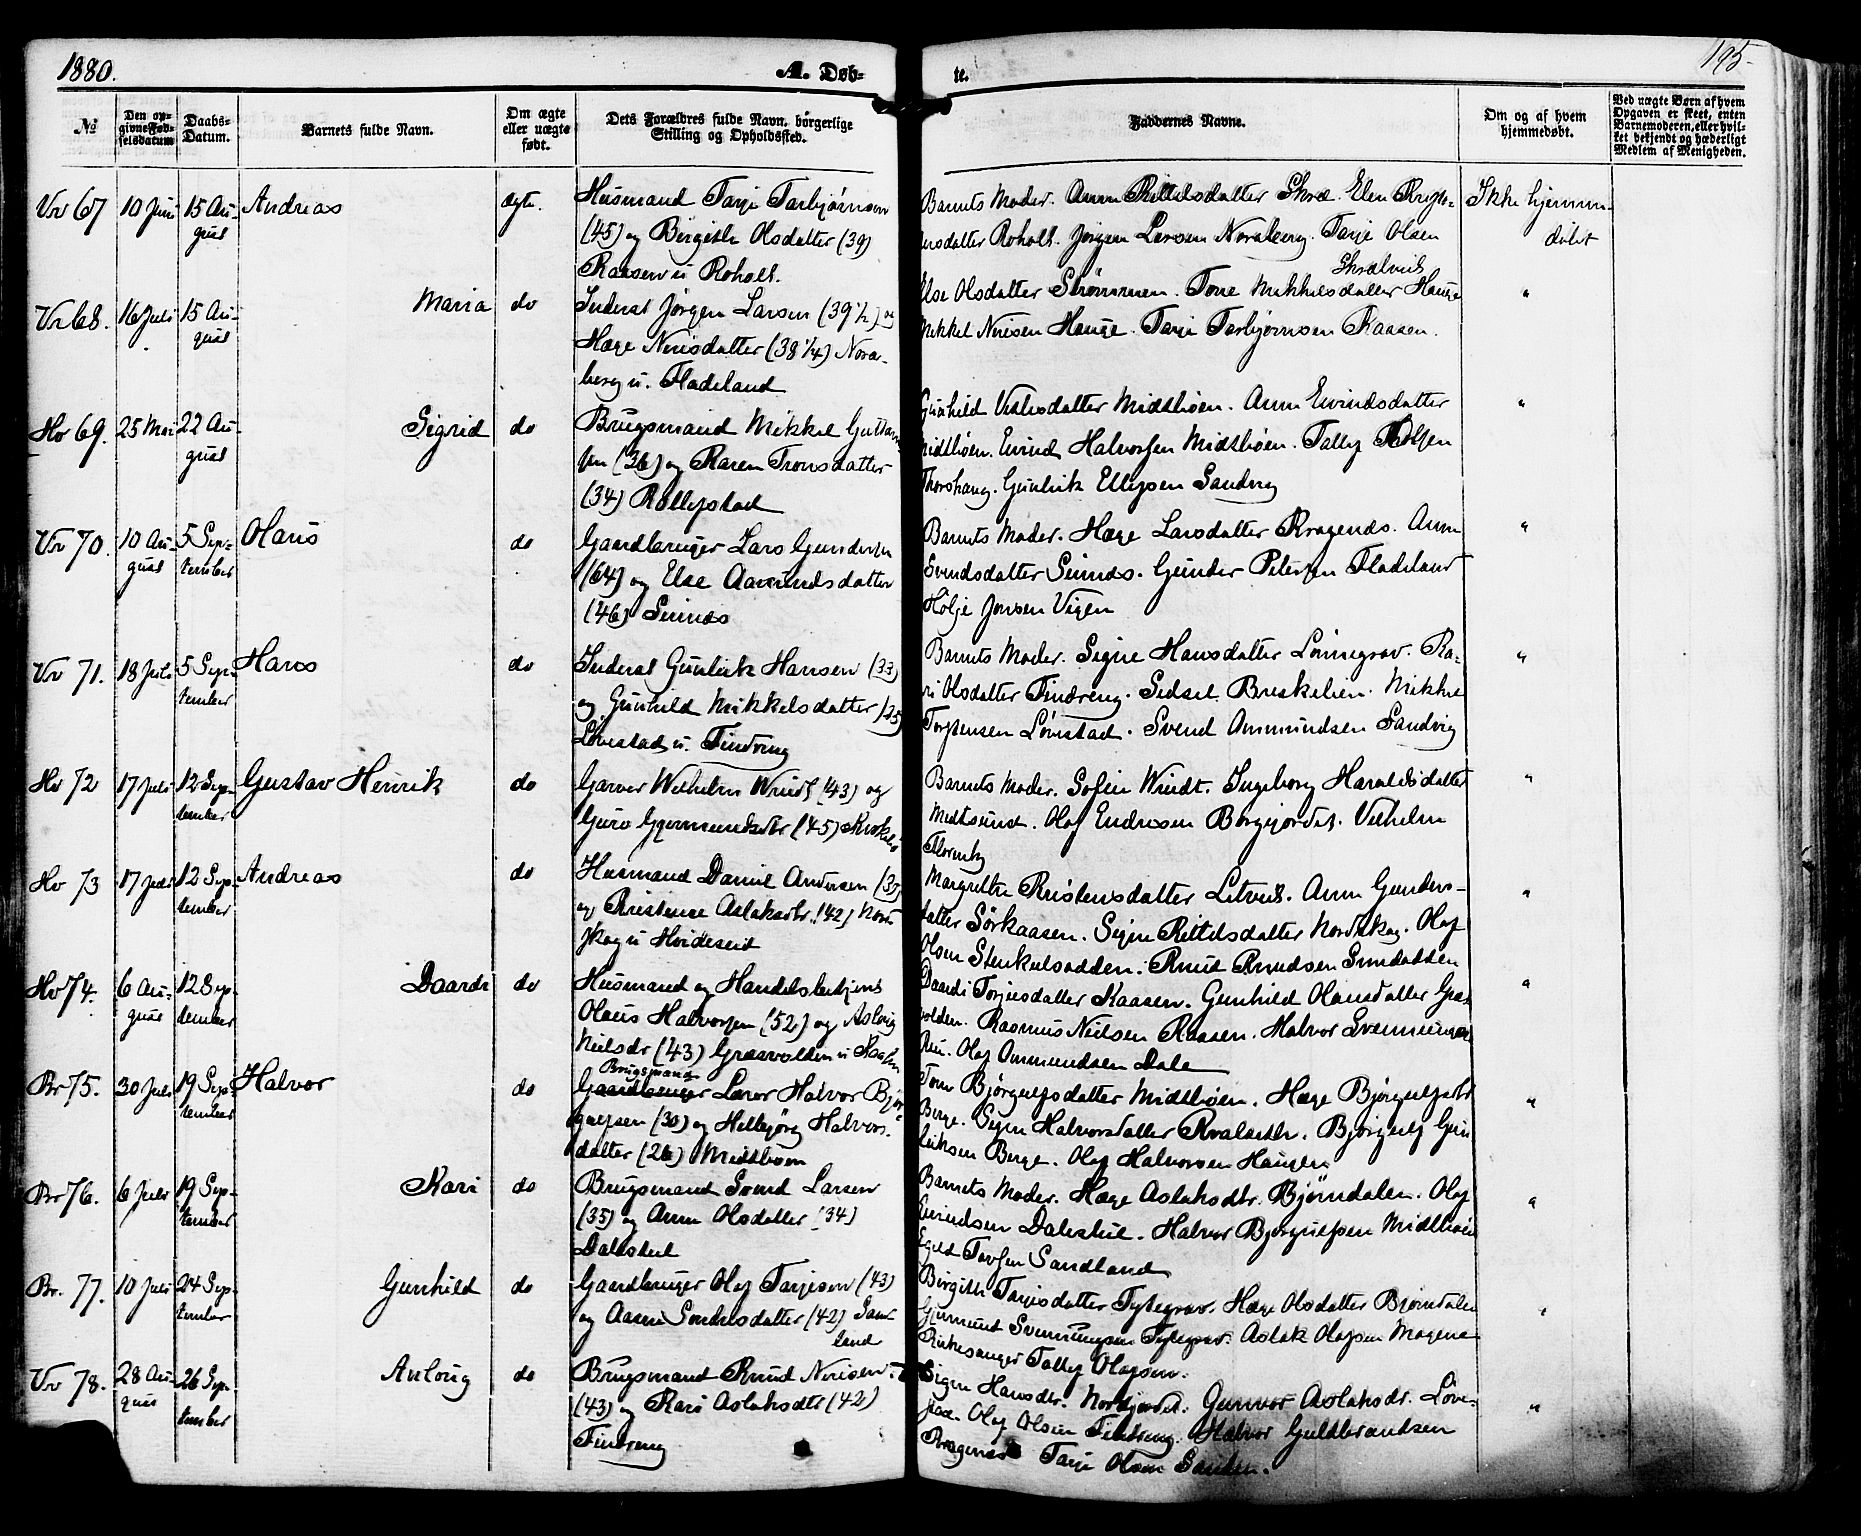 1880.
A. Døb-
te.
195
№
Den op-
givne Fød-
selsdatum
Daabs-
Datum.
Barnets fulde Navn.
Om ægte
eller uægte
født.
Dets Forældres fulde Navn, borgerlige
Stilling og Opholdssted.
Faddernes Navne.
Om og af hvem
hjemmedøbt.
Ved uægte Børn af hvem
Opgaven er skeet, enten
Barnemoderen, eller hvil-
ket bekjendt og hæderligt
Medlem af Menigheden.
Vr 67
10 Juni
15 Au-
gust
Andreas
ægte.
Husmand Tarje Tarbjørnsen
(45) og Birgithe Olsdatter (39)
Kaasen u Roholt.
Barnets Moder. Anne Kittelsdatter Skræ. Elen
Roholt. Jørgen Larsen Noraberg. Tarje Olsen
Ikke hjemme-
døbt
Vr 68.
16 Juli
15 Au-
gust
Maria
do
Inderst Jørgen Larsen (39½) og
Hæge Nirisdatter (38¼) Nora-
berg u. Fladeland
Else Olsdatter Strømmen. Tone Mikkelsdatter Hauge
Mikkel Nirisen Hauge. Tarje Tarbjørnsen Kaasen.
"
Hv 69.
25 Mai
22 Au-
gust
Sigrid
do
Brugsmand Mikkel
sen (36) og Karen Tronsdatter
(34)
Gunhild Midtbøen. Anne Eivindsdatter
Midtbøen. Eivind Halvorsen Midtbøen.
Gunleik Ellefsen Sandvig
"
Vr 70.
10 Au-
gust
5 Sep-
tember
Olaus
do
Gaardbruger Lars Gundersen
(64) og Else Aamundsdatter
(46)
Barnets Moder. Hæge Larsdatter Kragenæs. Anne
Svendsdatter Gunder Petersen Fladeland
Hølje Jonsen Vigen
"
Vr 71.
18 Juli
5 Sep-
tember
Hans
do
Inderst Gunleik Hansen (33)
og Gunhild Mikkelsdatter (35)
Løvestad u. Findreng
Barnets Moder. Signe Hansdatter Lønnegrav. Ka-
ri Olsdatter Findreng. Sidsel Breskelien. Mikkel
Torstensen Løvestad. Svend Ammundsen Sandvig
"
Hv 72
17 Juli
12 Sep-
tember
Gustav Henrik
do
Garver Wilhelm Windt (43) og
Guro Gjermundsdtr (45)
Barnets Moder. Sofie Windt. Ingeborg Haraldsdatter
Midtsund. Olaf Endresen Borgejordet. Vilhelm
"
Hv 73
17 Juli
12 Sep-
tember
Andreas
do
Husmand Daniel Andersen (37)
og Kristense Aslaksdtr. (42) Nord-
skog u Hvideseid
Margrethe Kristensdatter Anne Gunders-
datter Sørkaasen. Signe Kittelsdatter Nordskog. Olaf
Olsen Stenkulsodden. Knud Knudsen Sundodden
"
Hv 74.
6 Au-
gust
12 Sep-
tember
Daardi
do
Husmand og Handelsbetjent
Olaus Halvorsen (52) og Aslaug
Nielsdr (43) Græsvolden u Kaasen
Daardi Torjusdatter Kaasen. Gunhild Olausdatter Græs-
volden. Rasmus Nielsen Kaasen. Halvor Svenningsen
Olaf Ommundsen Dale
"
Br 75.
30 Juli
19 Sep-
tember
Halvor
do
Brugsmand
Gaardbruger Lærer Halvor Bjør-
gulfsen (30) og Helbjørg Halvors-
datter (26) Midtbøen
Tone Bjørgulfsdatter Midtbøen. Hæge Bjørgulfsdtr
Berge. Signe Halvorsdatter Kvalsæth. Bjørgulf Gun-
leiksen Berge. Olaf Halvorsen Haugen
"
Br 76.
6 Juli
19 Sep-
tember
Kari
do
Brugsmand Svend Larsen
(35) og Anne Olsdatter (34)
Daleskul
Barnets Moder. Hæge Aslaksdtr. Bjørndalen. Olaf
Eivindsen Daleskul. Halvor Bjørgulfsen Midtbøen
Sandland
"
Br. 77.
10 Juli
24 Sep-
tember
Gunhild
do
Gaardbruger Olaf Tarjesen (43)
og Aasne Sondresdatter (42) Sand-
land
Birgith Tarjesdatter Tytegrav. Hæge Olsdatter Bjørndalen
Gjermund Svenningsen Tytegrav. Aslak Olafsen Mogene
Kirkesanger Tallef Olafsen.
"
Vr 78.
28 Au-
gust
26 Sep-
tember
Anlaug
do
Brugsmand Knud Nirisen
(43) og Kari Aslaksdtr (42)
Findreng
Signe Hansdtr. Nordjordet. Gunvor Aslaksdr. Løve-
stad. Olaf Olsen Findreng. Halvor Guldbrandsen
Kragenæs Tarje Olsen Sanden.
"